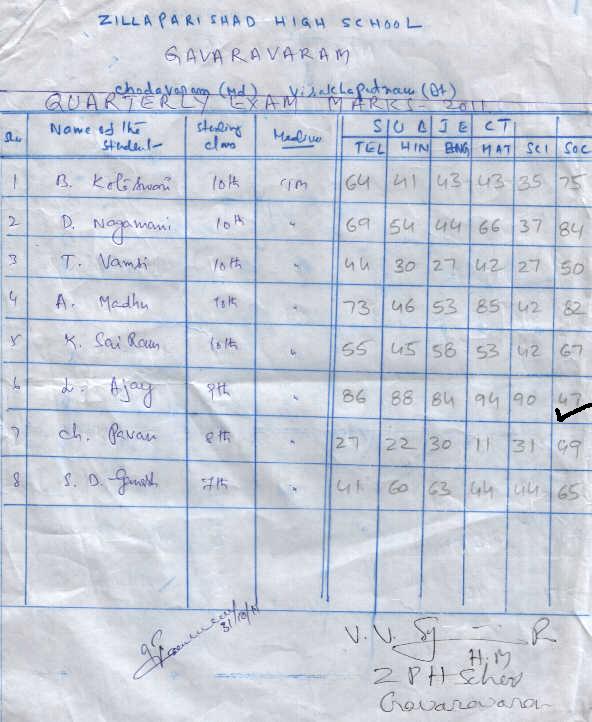 ZILLAPARISHAD HIGH SCHOOL
GAVARAVARAM
chodavaram (Md) Visakhapatnam (Dt)
QUARTERLY EXAM MARKS-2011
Name of the Student Studing class Medium SUBJECT
TEL HIN ENG MAT SCI SOC
1 B. 10th 64 41 43 43 35 75
2 D. Nagamani 10th " 69 54 44 66 37 84
3 T. Vamsi 10th " 44 30 27 42 27 50
4 A. Madhu 10th " 73 46 53 85 42 82
5 K. Sai Ram 10th " 55 45 58 53 42 67
6 L. Ajay 9th " 86 88 84 94 90 47
7 Ch. Pavan 8th " 27 22 30 11 31 49
8 S. D. Ganesh 7th " 41 60 63 44 44 65
31/10/11
V. V.
H.M
Z P H School
Gavaravaram